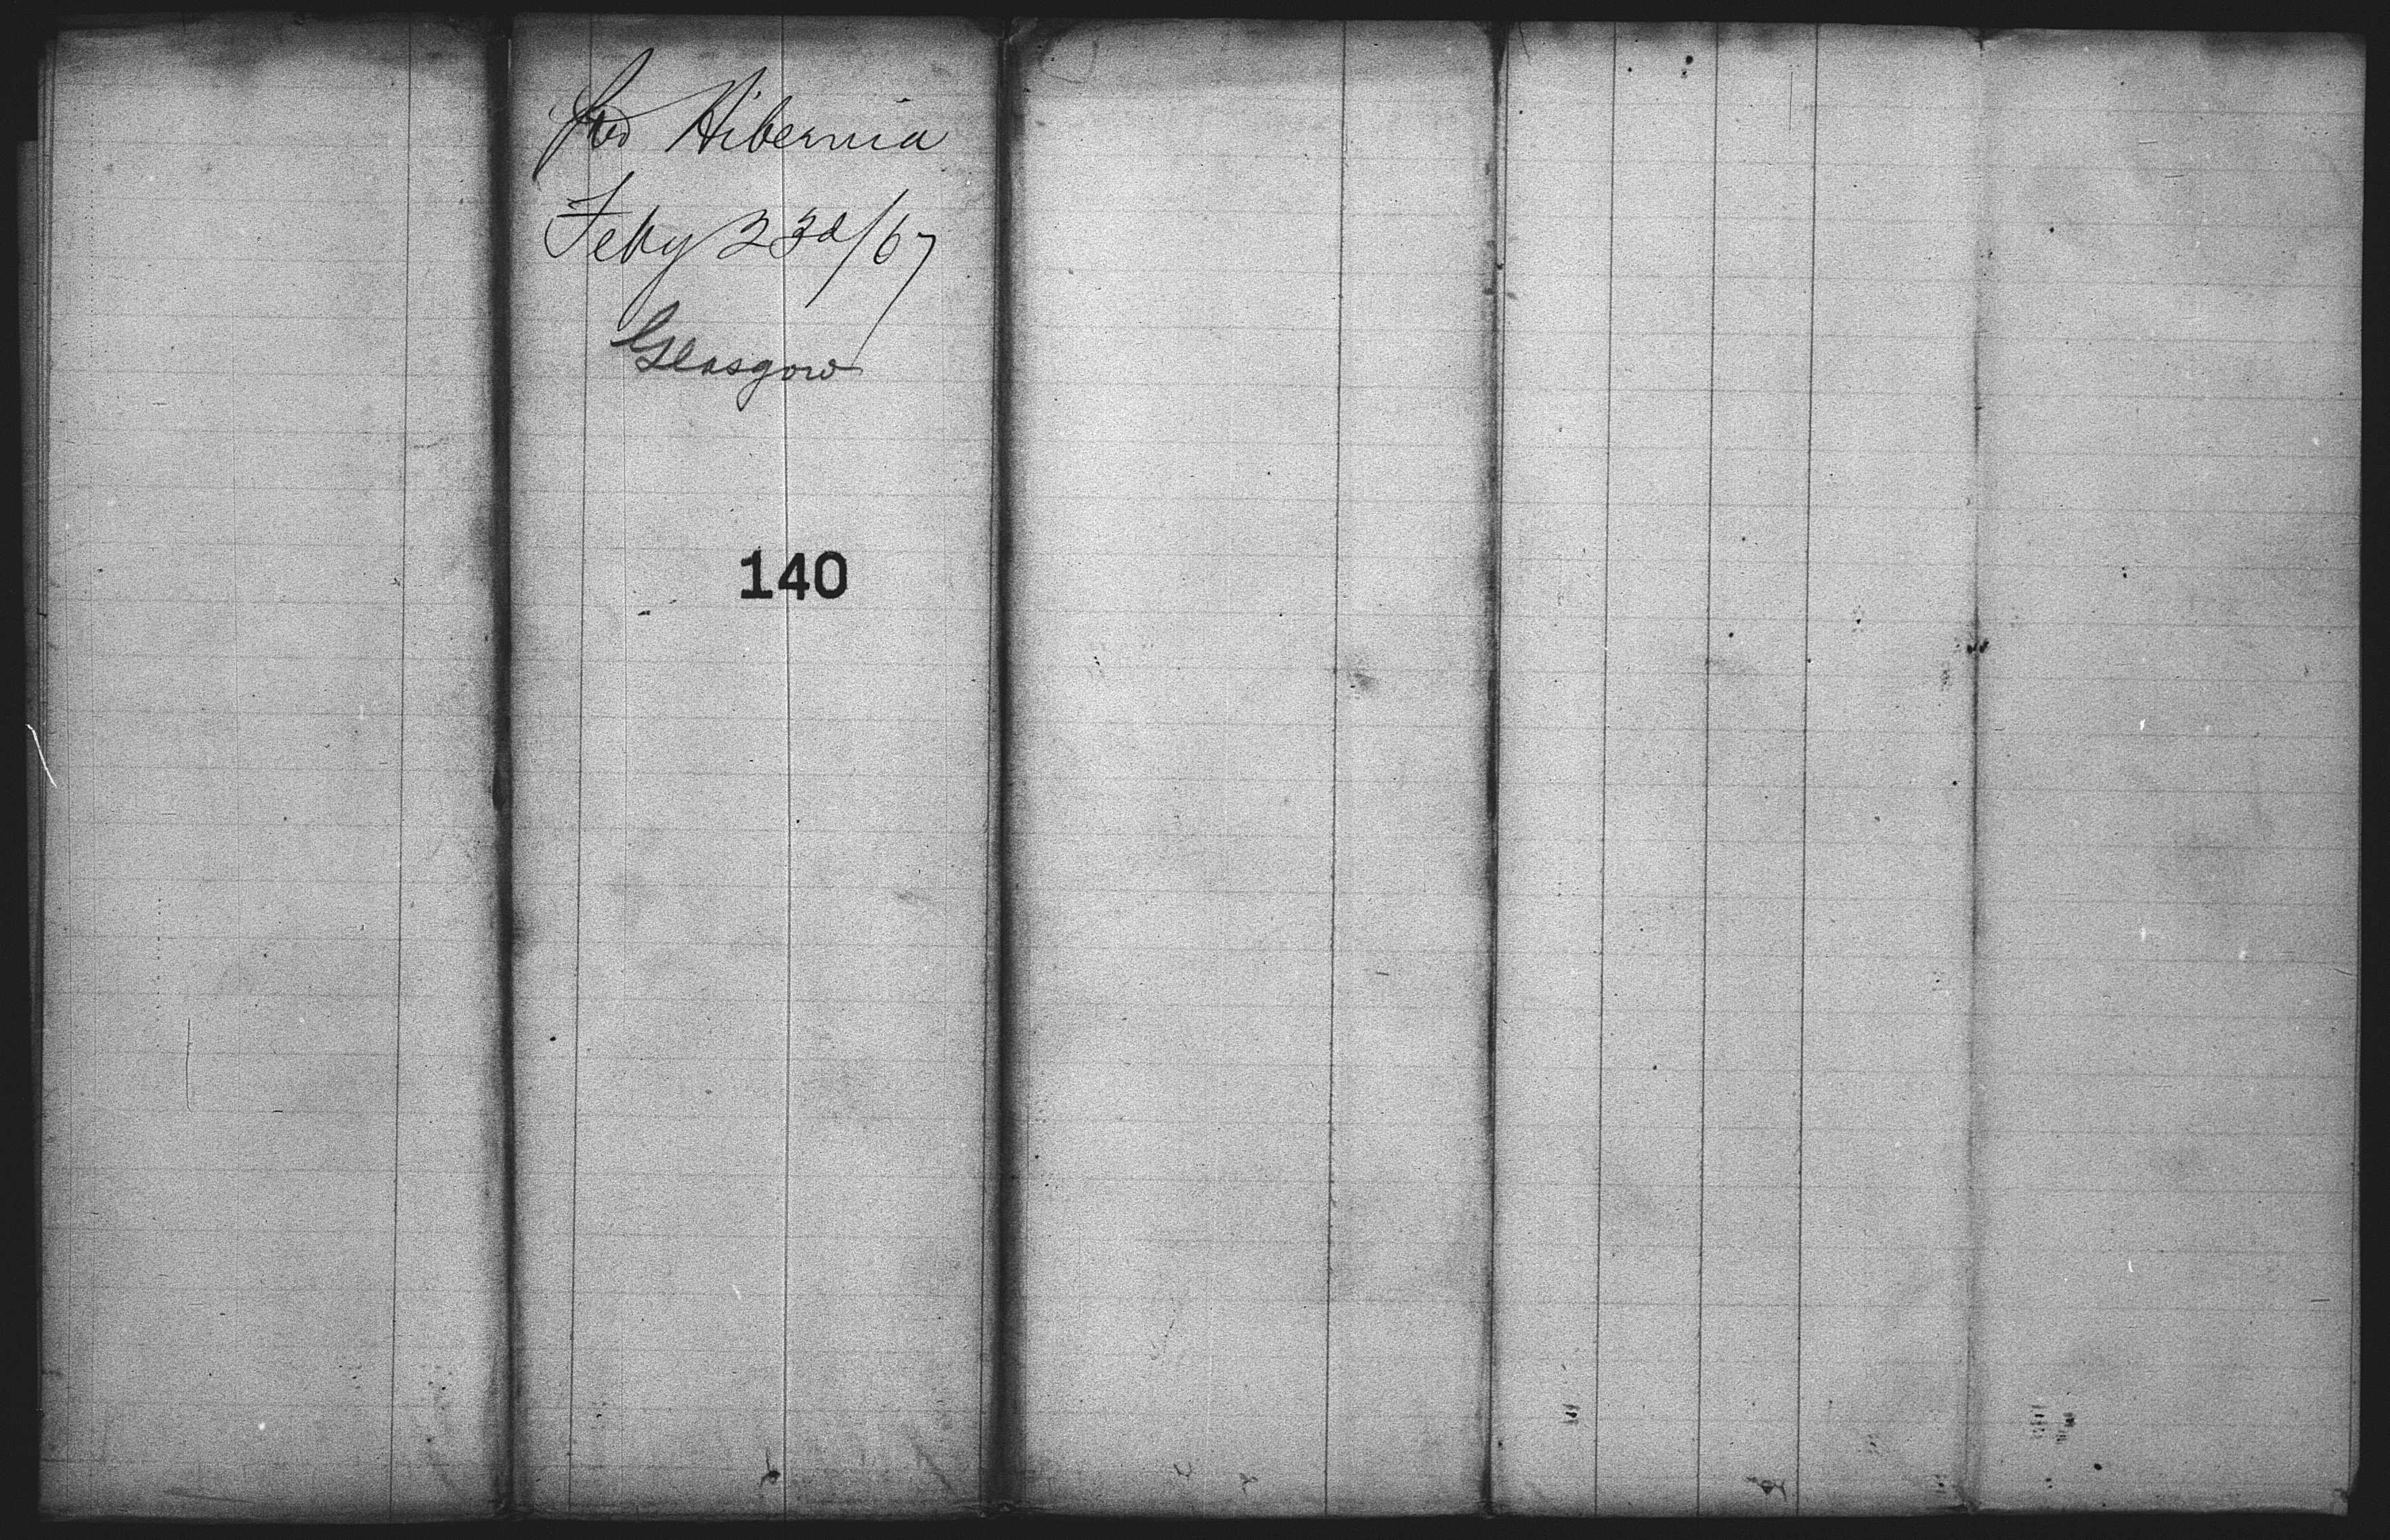 Hibernia
Feby 23d/67
Glasgow
140